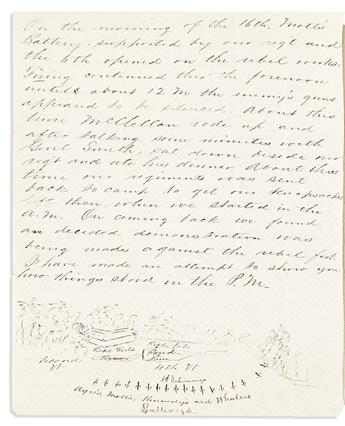 On the morning of the 16th, Mott's
Battery, supported by our reg't and
the 6th opened on the rebel works.
Firing continued thro' the forenoon
until about 12 M the enemy's guns
appeared to be silenced. About this
time McClellan rode up and
after talking some minutes with
Genl Smith, sat down beside our
reg't and ate his dinner About this
time our regiments was sent
back to camp to get our knapsacks
left there, when we started in the
A.M. On coming back we found
an decided demonstration was
being made against the rebel fort
I have made an attempt to show you
how things stood in the P.M.
Rifle Pits
Rifle Pits
second
Vt
4th Vt
Ayres, Motts, Kennedys and Whalers
Batterys